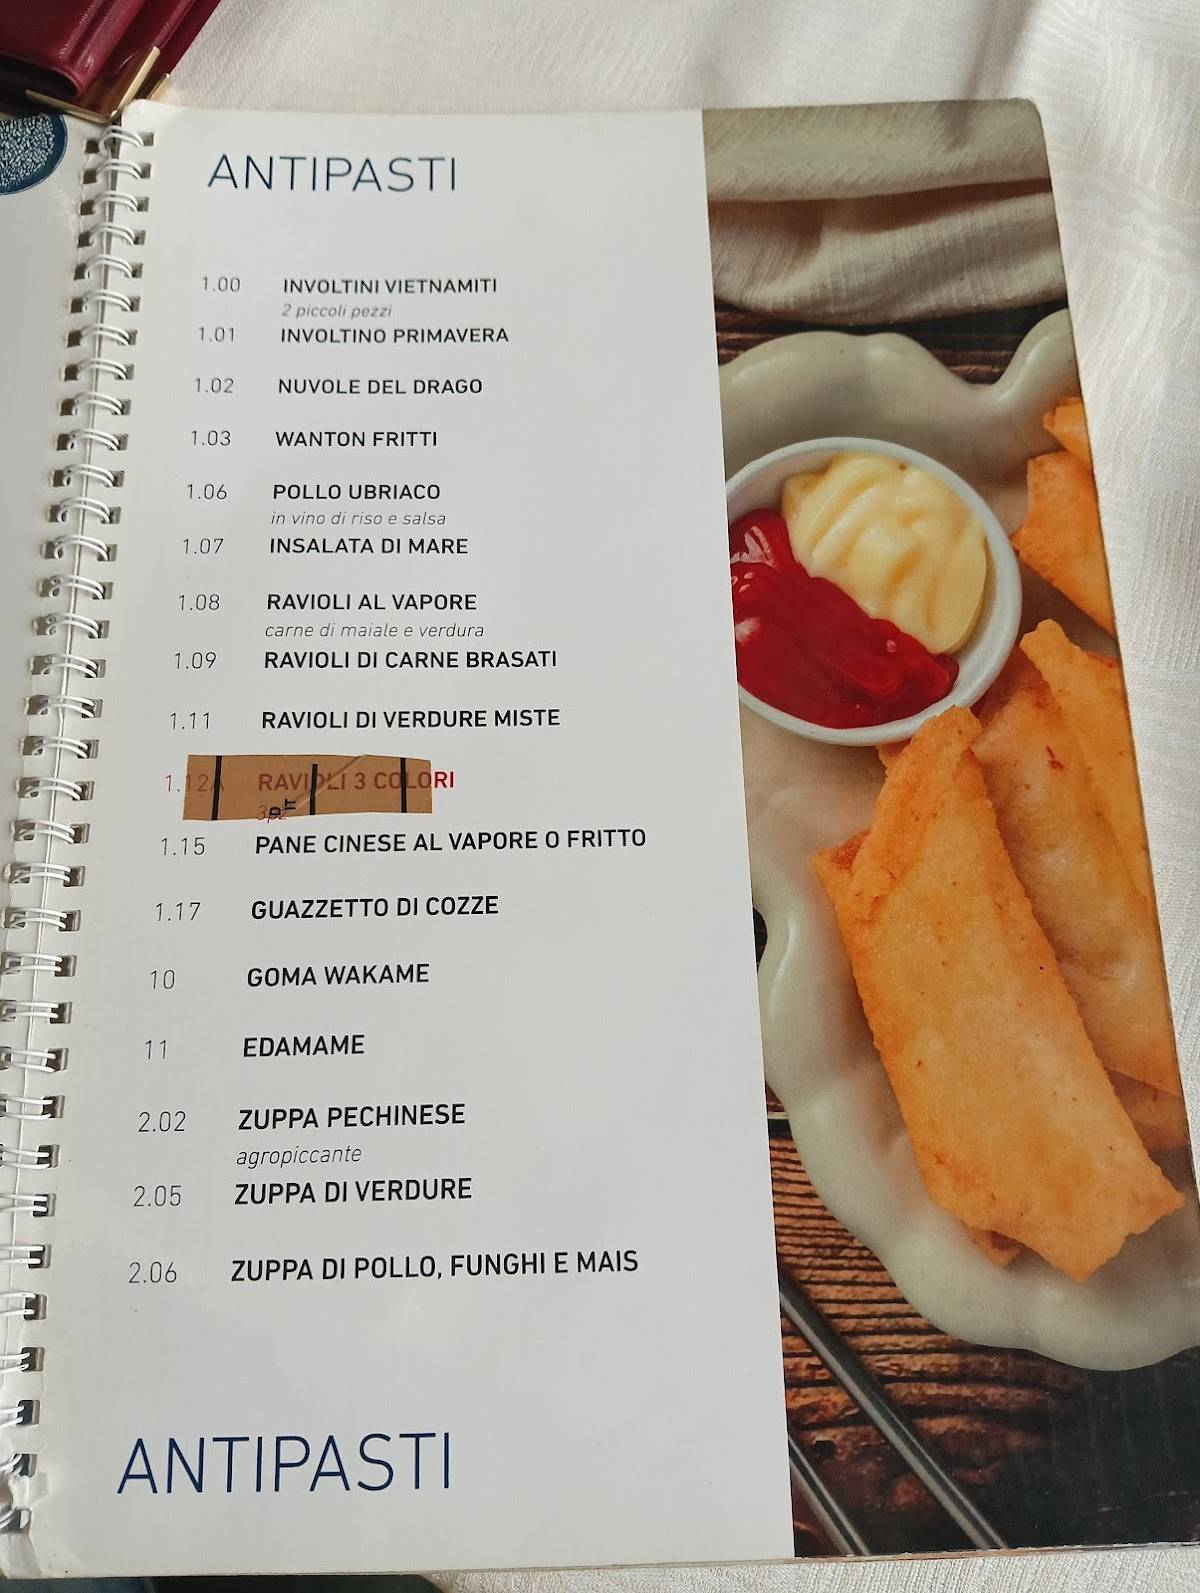 ANTIPASTI
1.00 INVOLTINI VIETNAMITI
2 piccoli pezzi
1.01 INVOLTINO PRIMAVERA
1.02 NUVOLE DEL DRAGO
1.03 WANTON FRITTI
1.06 POLLO UBRIACO
in vino di riso e salsa
1.07 INSALATA DI MARE
1.08 RAVIOLI AL VAPORE
carne di maiale e verdura
1.09 RAVIOLI DI CARNE BRASATI
1.11 RAVIOLI DI VERDURE MISTE
1.12A RAVIOLI 3 COLORI
3pz
1.15 PANE CINESE AL VAPORE O FRITTO
1.17 GUAZZETTO DI COZZE
10 GOMA WAKAME
11 EDAMAME
2.02 ZUPPA PECHINESE
agropiccante
2.05 ZUPPA DI VERDURE
2.06 ZUPPA DI POLLO, FUNGHI E MAIS
ANTIPASTI